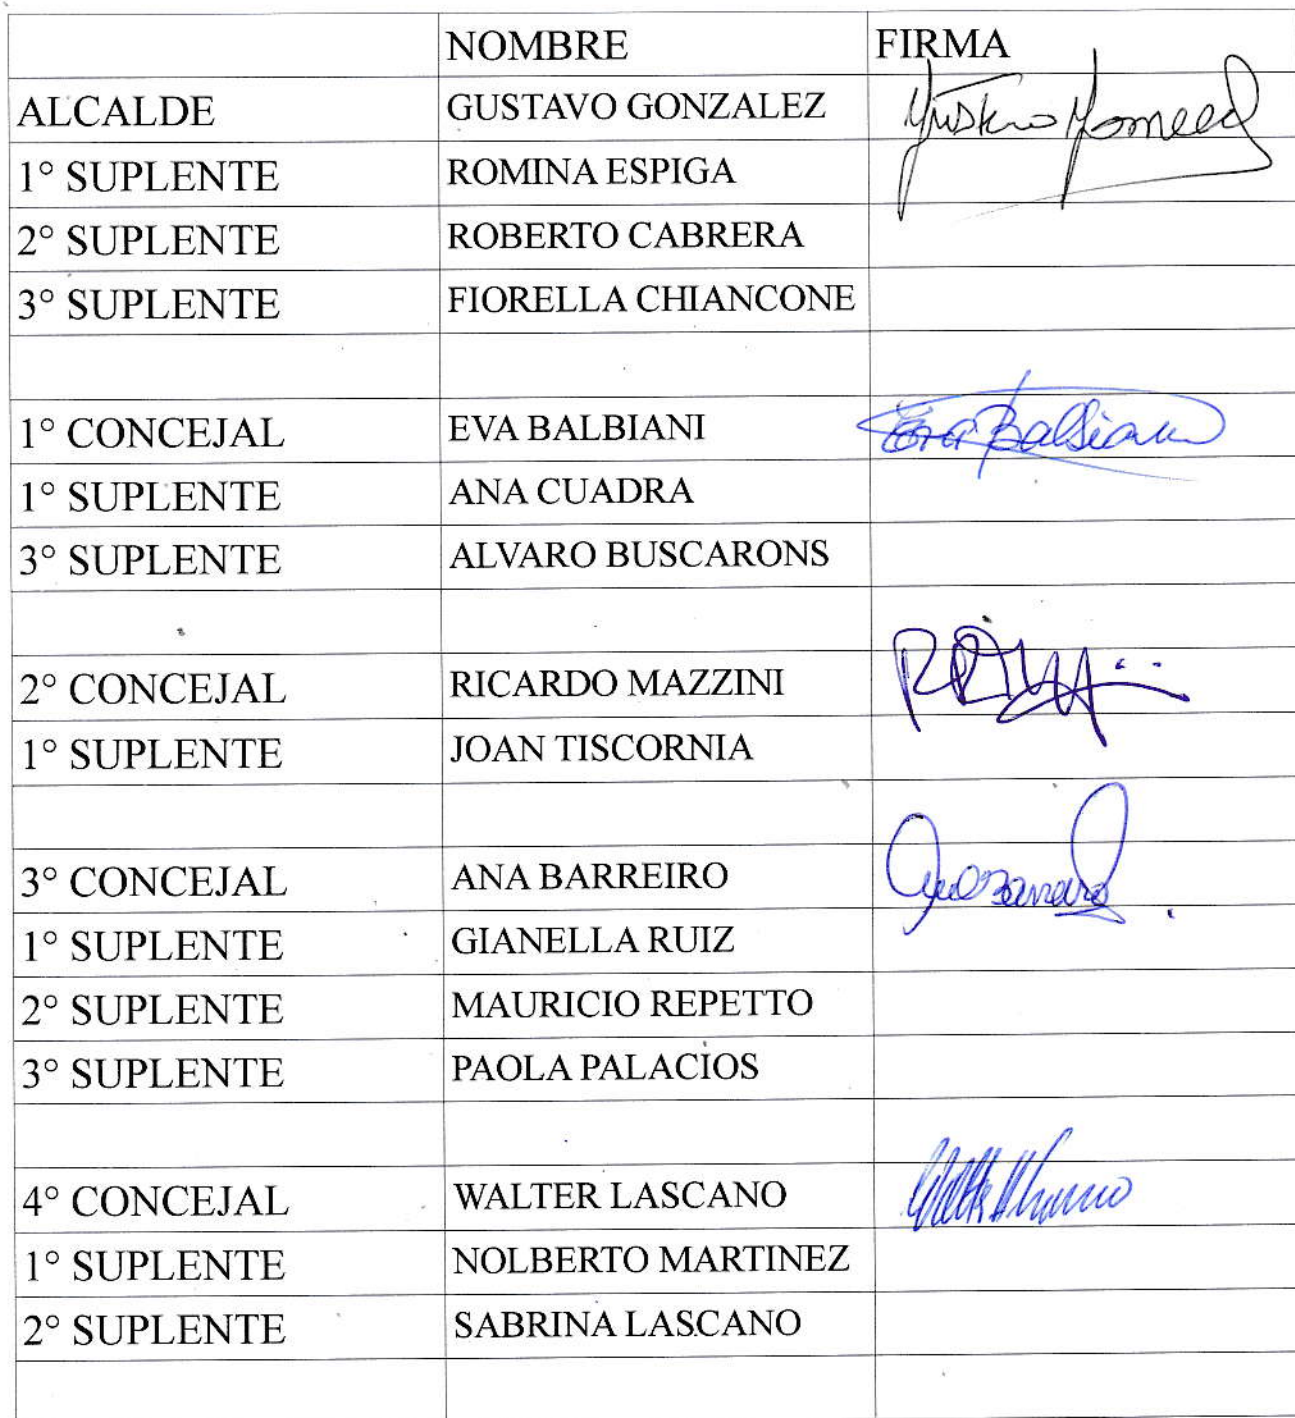 NOMBRE FIRMA
ALCALDE GUSTAVO GONZALEZ
1° SUPLENTE ROMINA ESPIGA
2° SUPLENTE ROBERTO CABRERA
3° SUPLENTE FIORELLA CHIANCONE
1° CONCEJAL EVA BALBIANI Eva Balbiani
1° SUPLENTE ANA CUADRA
3° SUPLENTE ALVARO BUSCARONS
2° CONCEJAL RICARDO MAZZINI
1° SUPLENTE JOAN TISCORNIA
3° CONCEJAL ANA BARREIRO
1° SUPLENTE GIANELLA RUIZ
2° SUPLENTE MAURICIO REPETTO
3° SUPLENTE PAOLA PALACIOS
4° CONCEJAL WALTER LASCANO
1° SUPLENTE NOLBERTO MARTINEZ
2° SUPLENTE SABRINA LASCANO